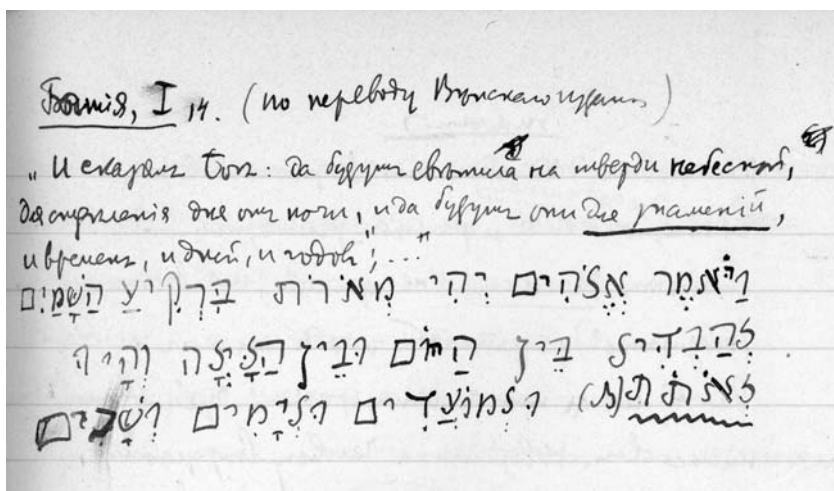 Бытія, I, 14. (по переводу Вѣнскаго изданія)
„И сказалъ Богъ: да будутъ свѣтила на тверди небесной,
для отдѣленія дня отъ ночи, и да будутъ они для знаменій,
и временъ, и дней, и годовъ; ..."
וַיֹּאמֶר אֱלֹהִים יְהִי מְאֹרֹת בִּרְקִיעַ הַשָּׁמַיִם
לְהַבְדִּיל בֵּין הַיּוֹם וּבֵין הַלָּיְלָה וְהָיוּ
לְאֹתֹת (ת) וּלְמוֹעֲדִים וּלְיָמִים וְשָׁנִים